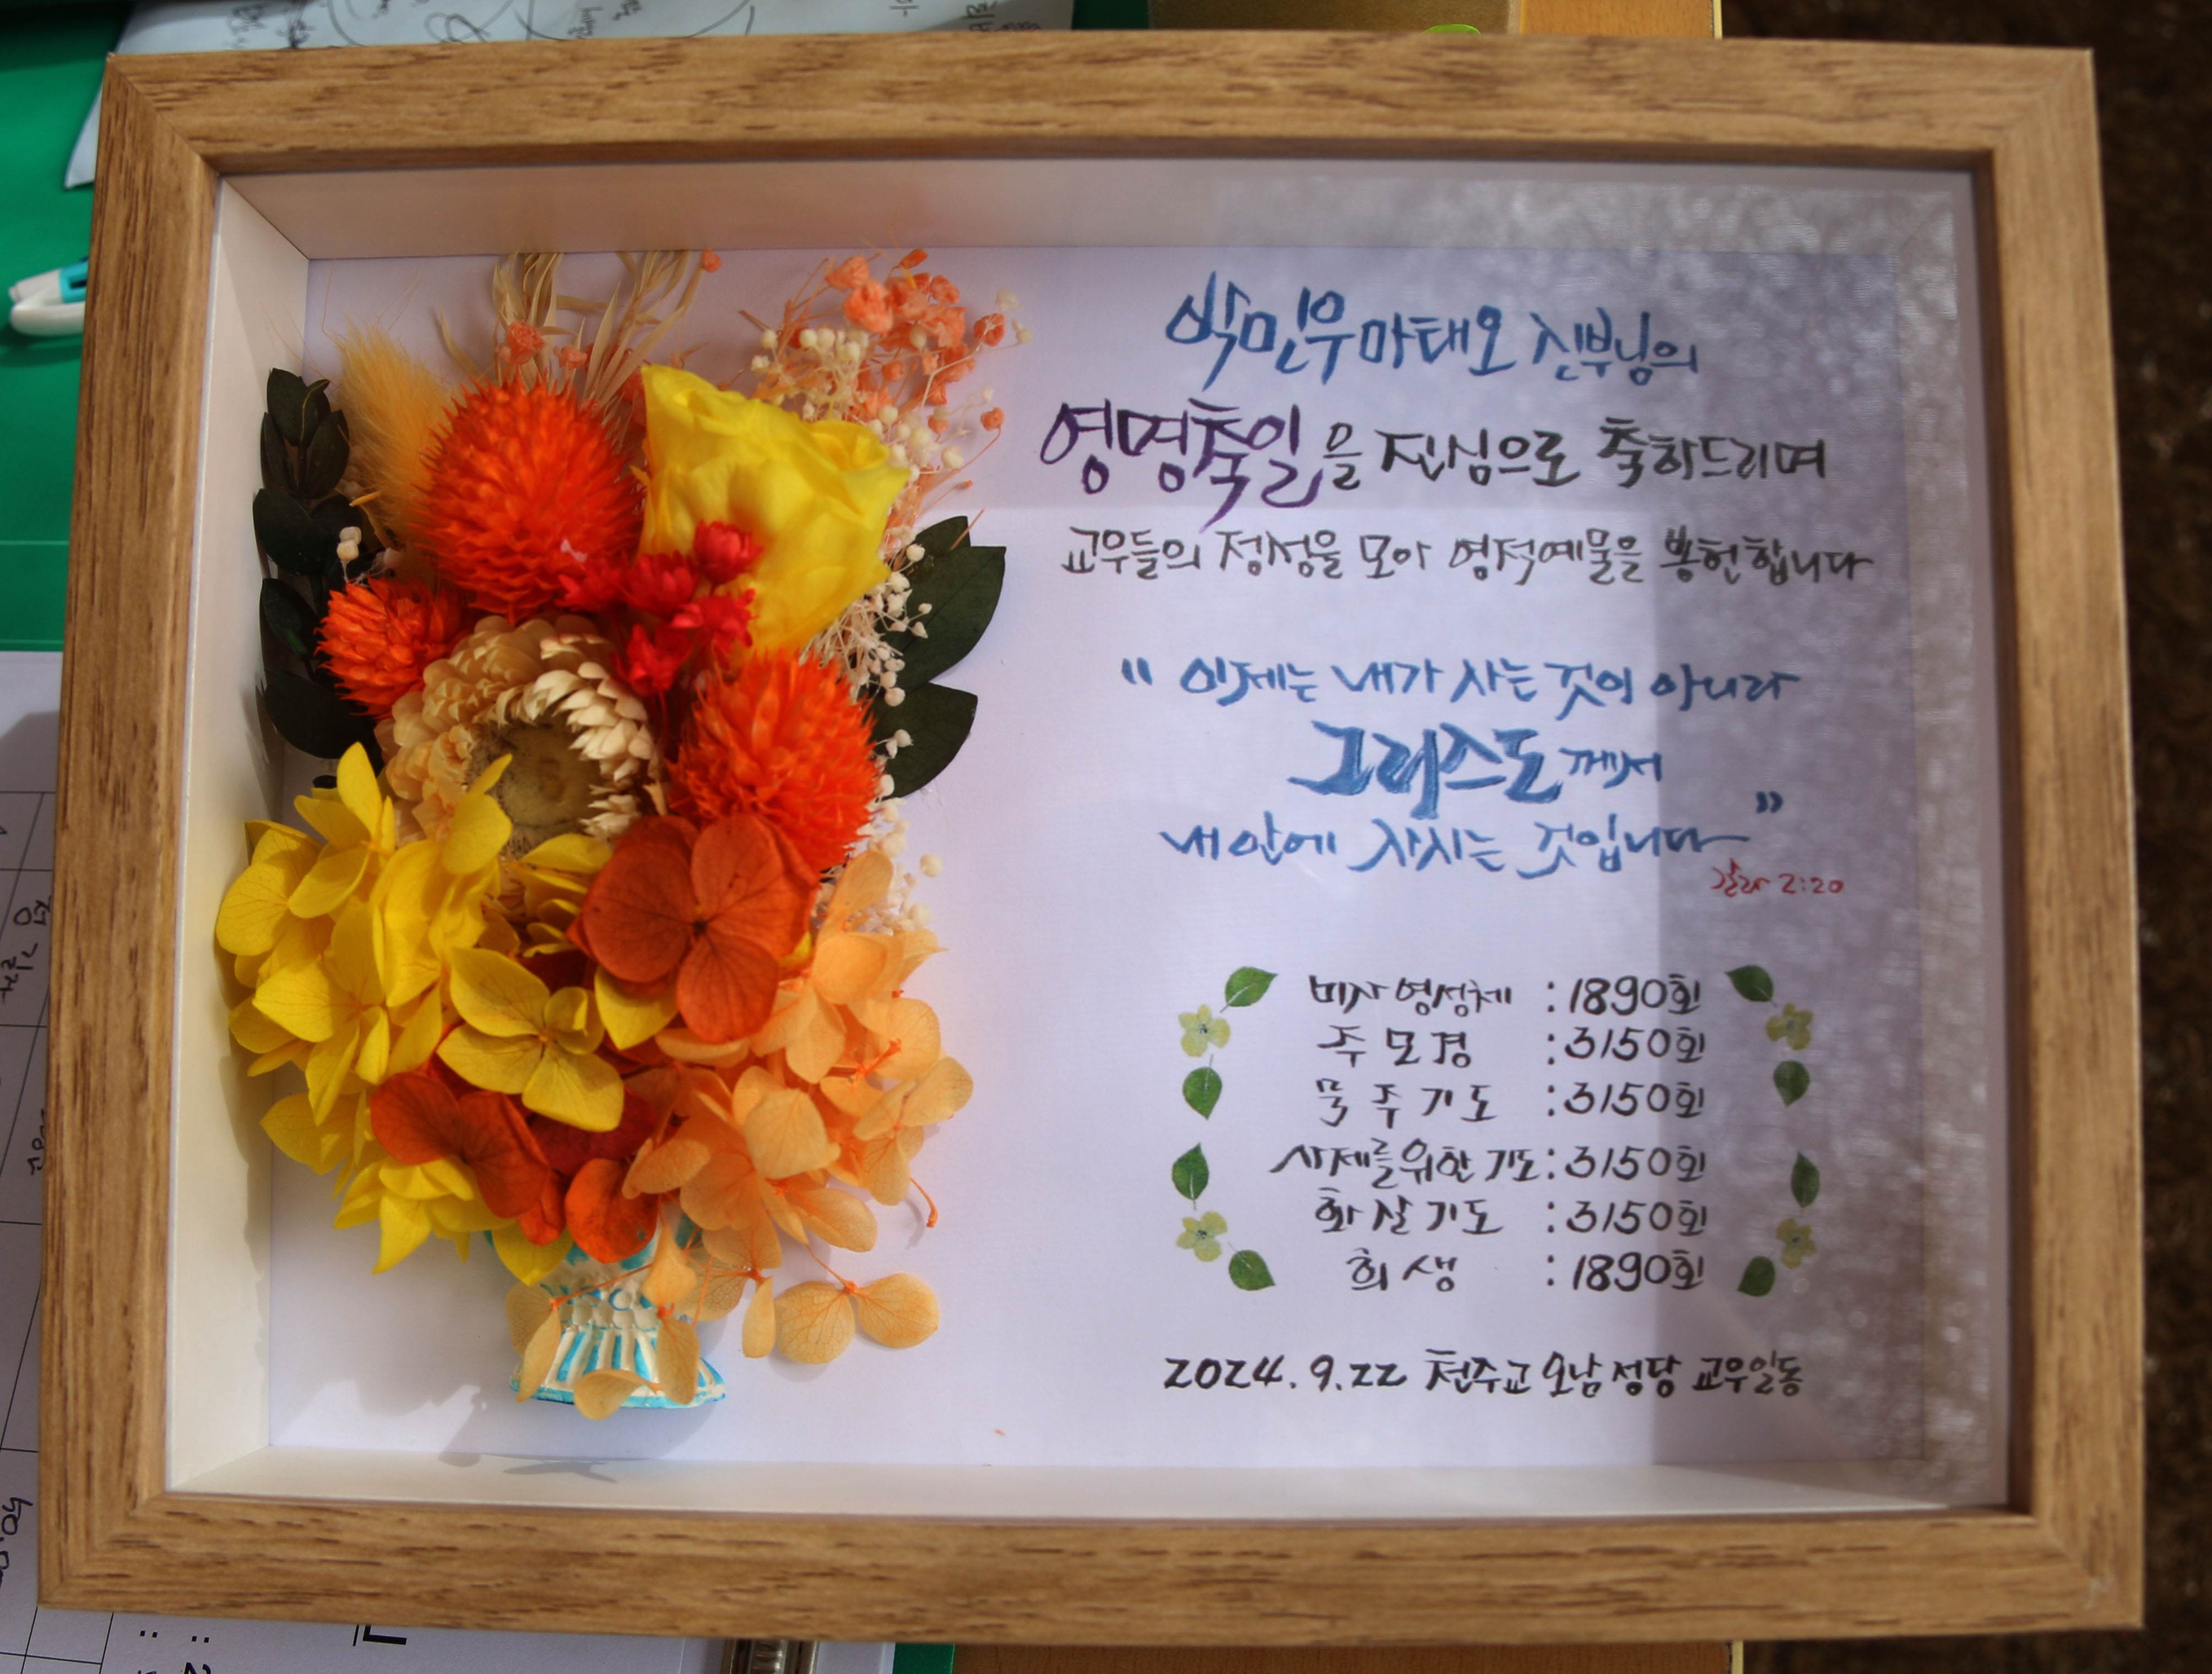 박민우 마태오 신부님의
영명축일을 진심으로 축하드리며
교우들의 정성을 모아 영적예물을 봉헌합니다
"이제는 내가 사는 것이 아니라
그리스도께서
내 안에 사시는 것입니다"
갈라 2:20
미사 영성체 : 1890회
주모경 : 3150회
묵주기도 : 3150회
사제를위한 기도 : 3150회
화살기도 : 3150회
희생 : 1890회
2024. 9. 22 천주교 오남성당 교우일동